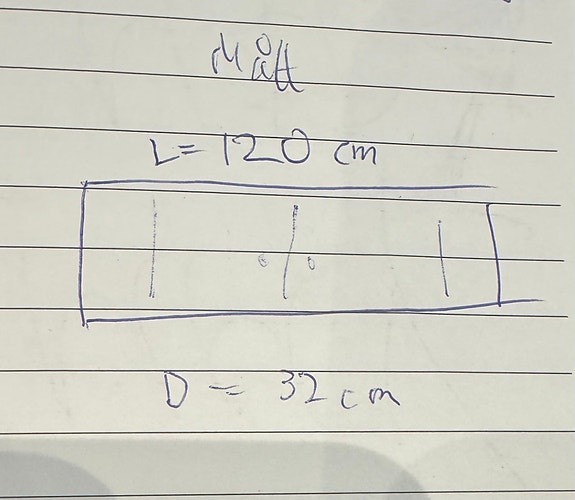 Mått
L = 120 cm
D = 32 cm